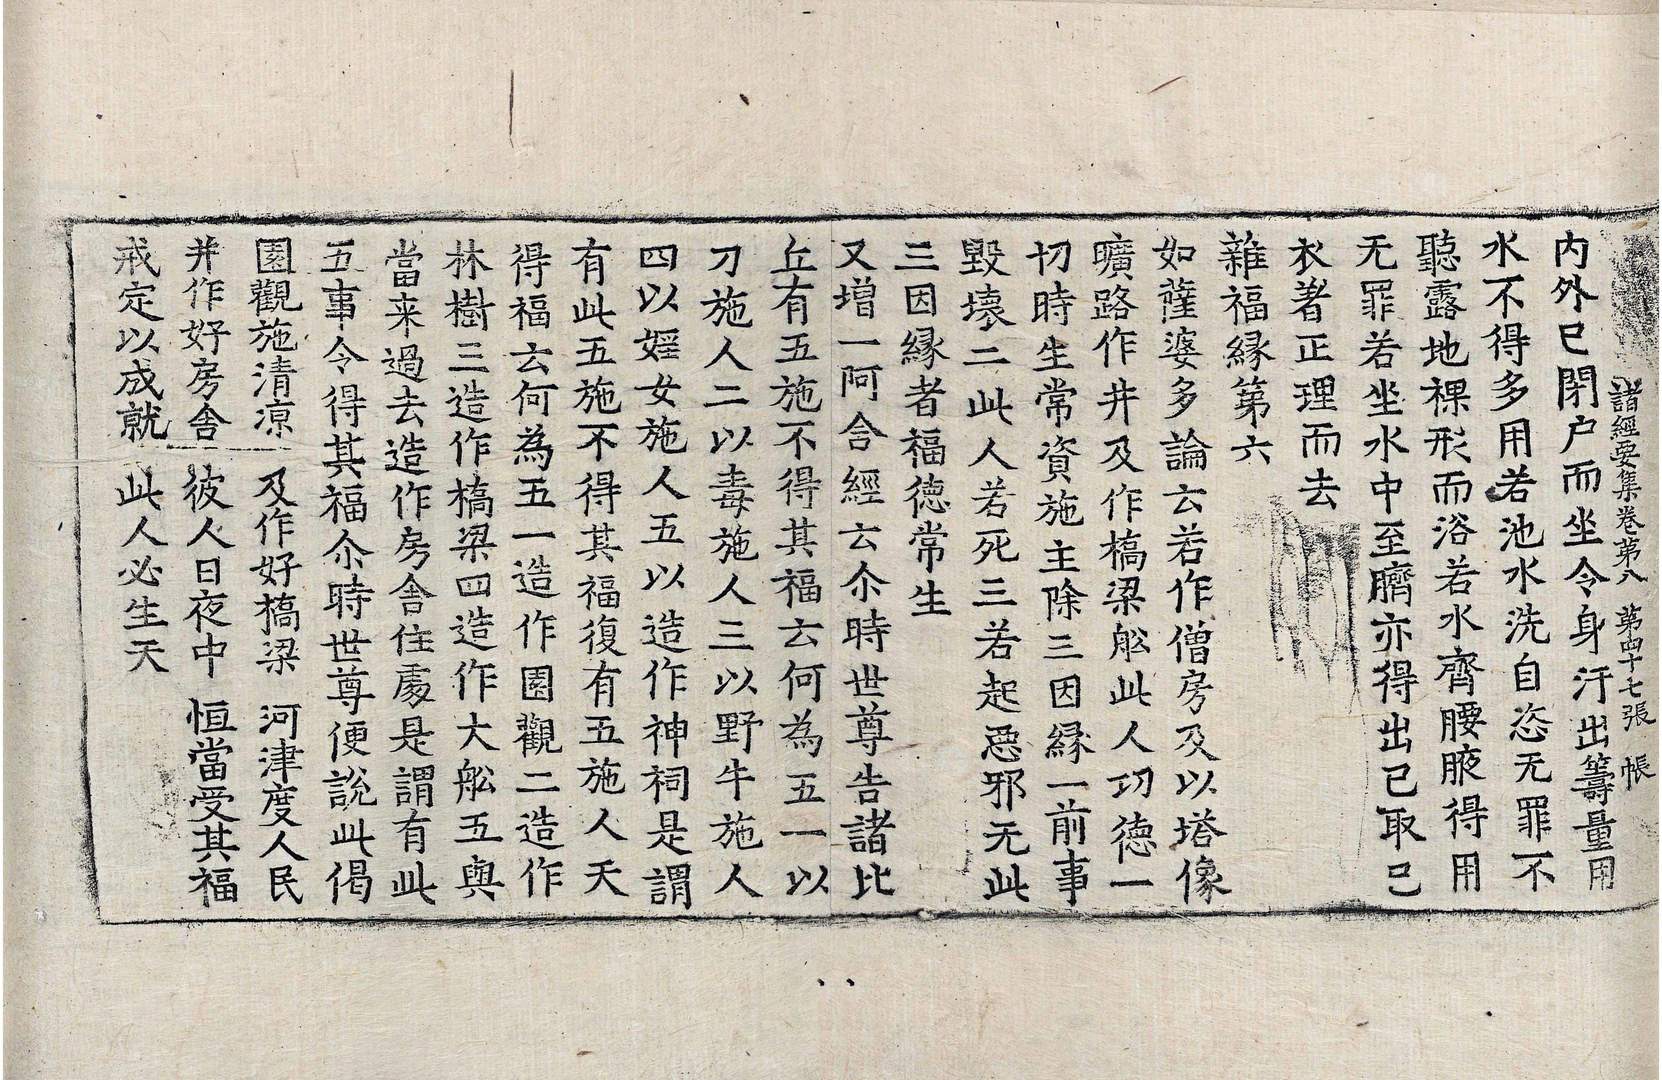 諸經要集卷第八　第四十七張　帳
内外已閇户而坐令身汗出籌量用
水不得多用若池水洗自恣无罪不
聽露地裸形而浴若水齊腰腋得用
无罪若坐水中至臍亦得出已取已
衣著正理而去
雜福縁第六
如薩婆多論云若作僧房及以塔像
曠路作井及作橋梁舩此人功德一
切時生常資施主除三因縁一前事
毀壞二此人若死三若起惡邪无此
三因縁者福德常生
又增一阿含經云尒時世尊告諸比
丘有五施不得其福云何為五一以
刀施人二以毒施人三以野牛施人
四以婬女施人五以造作神祠是謂
有此五施不得其福復有五施人天
得福云何為五一造作園觀二造作
林樹三造作橋梁四造作大舩五與
當来過去造作房舍住處是謂有此
五事令得其福尒時世尊便說此偈
園觀施清凉　及作好橋梁　河津度人民
并作好房舍　彼人日夜中　恒當受其福
戒定以成就　此人必生天